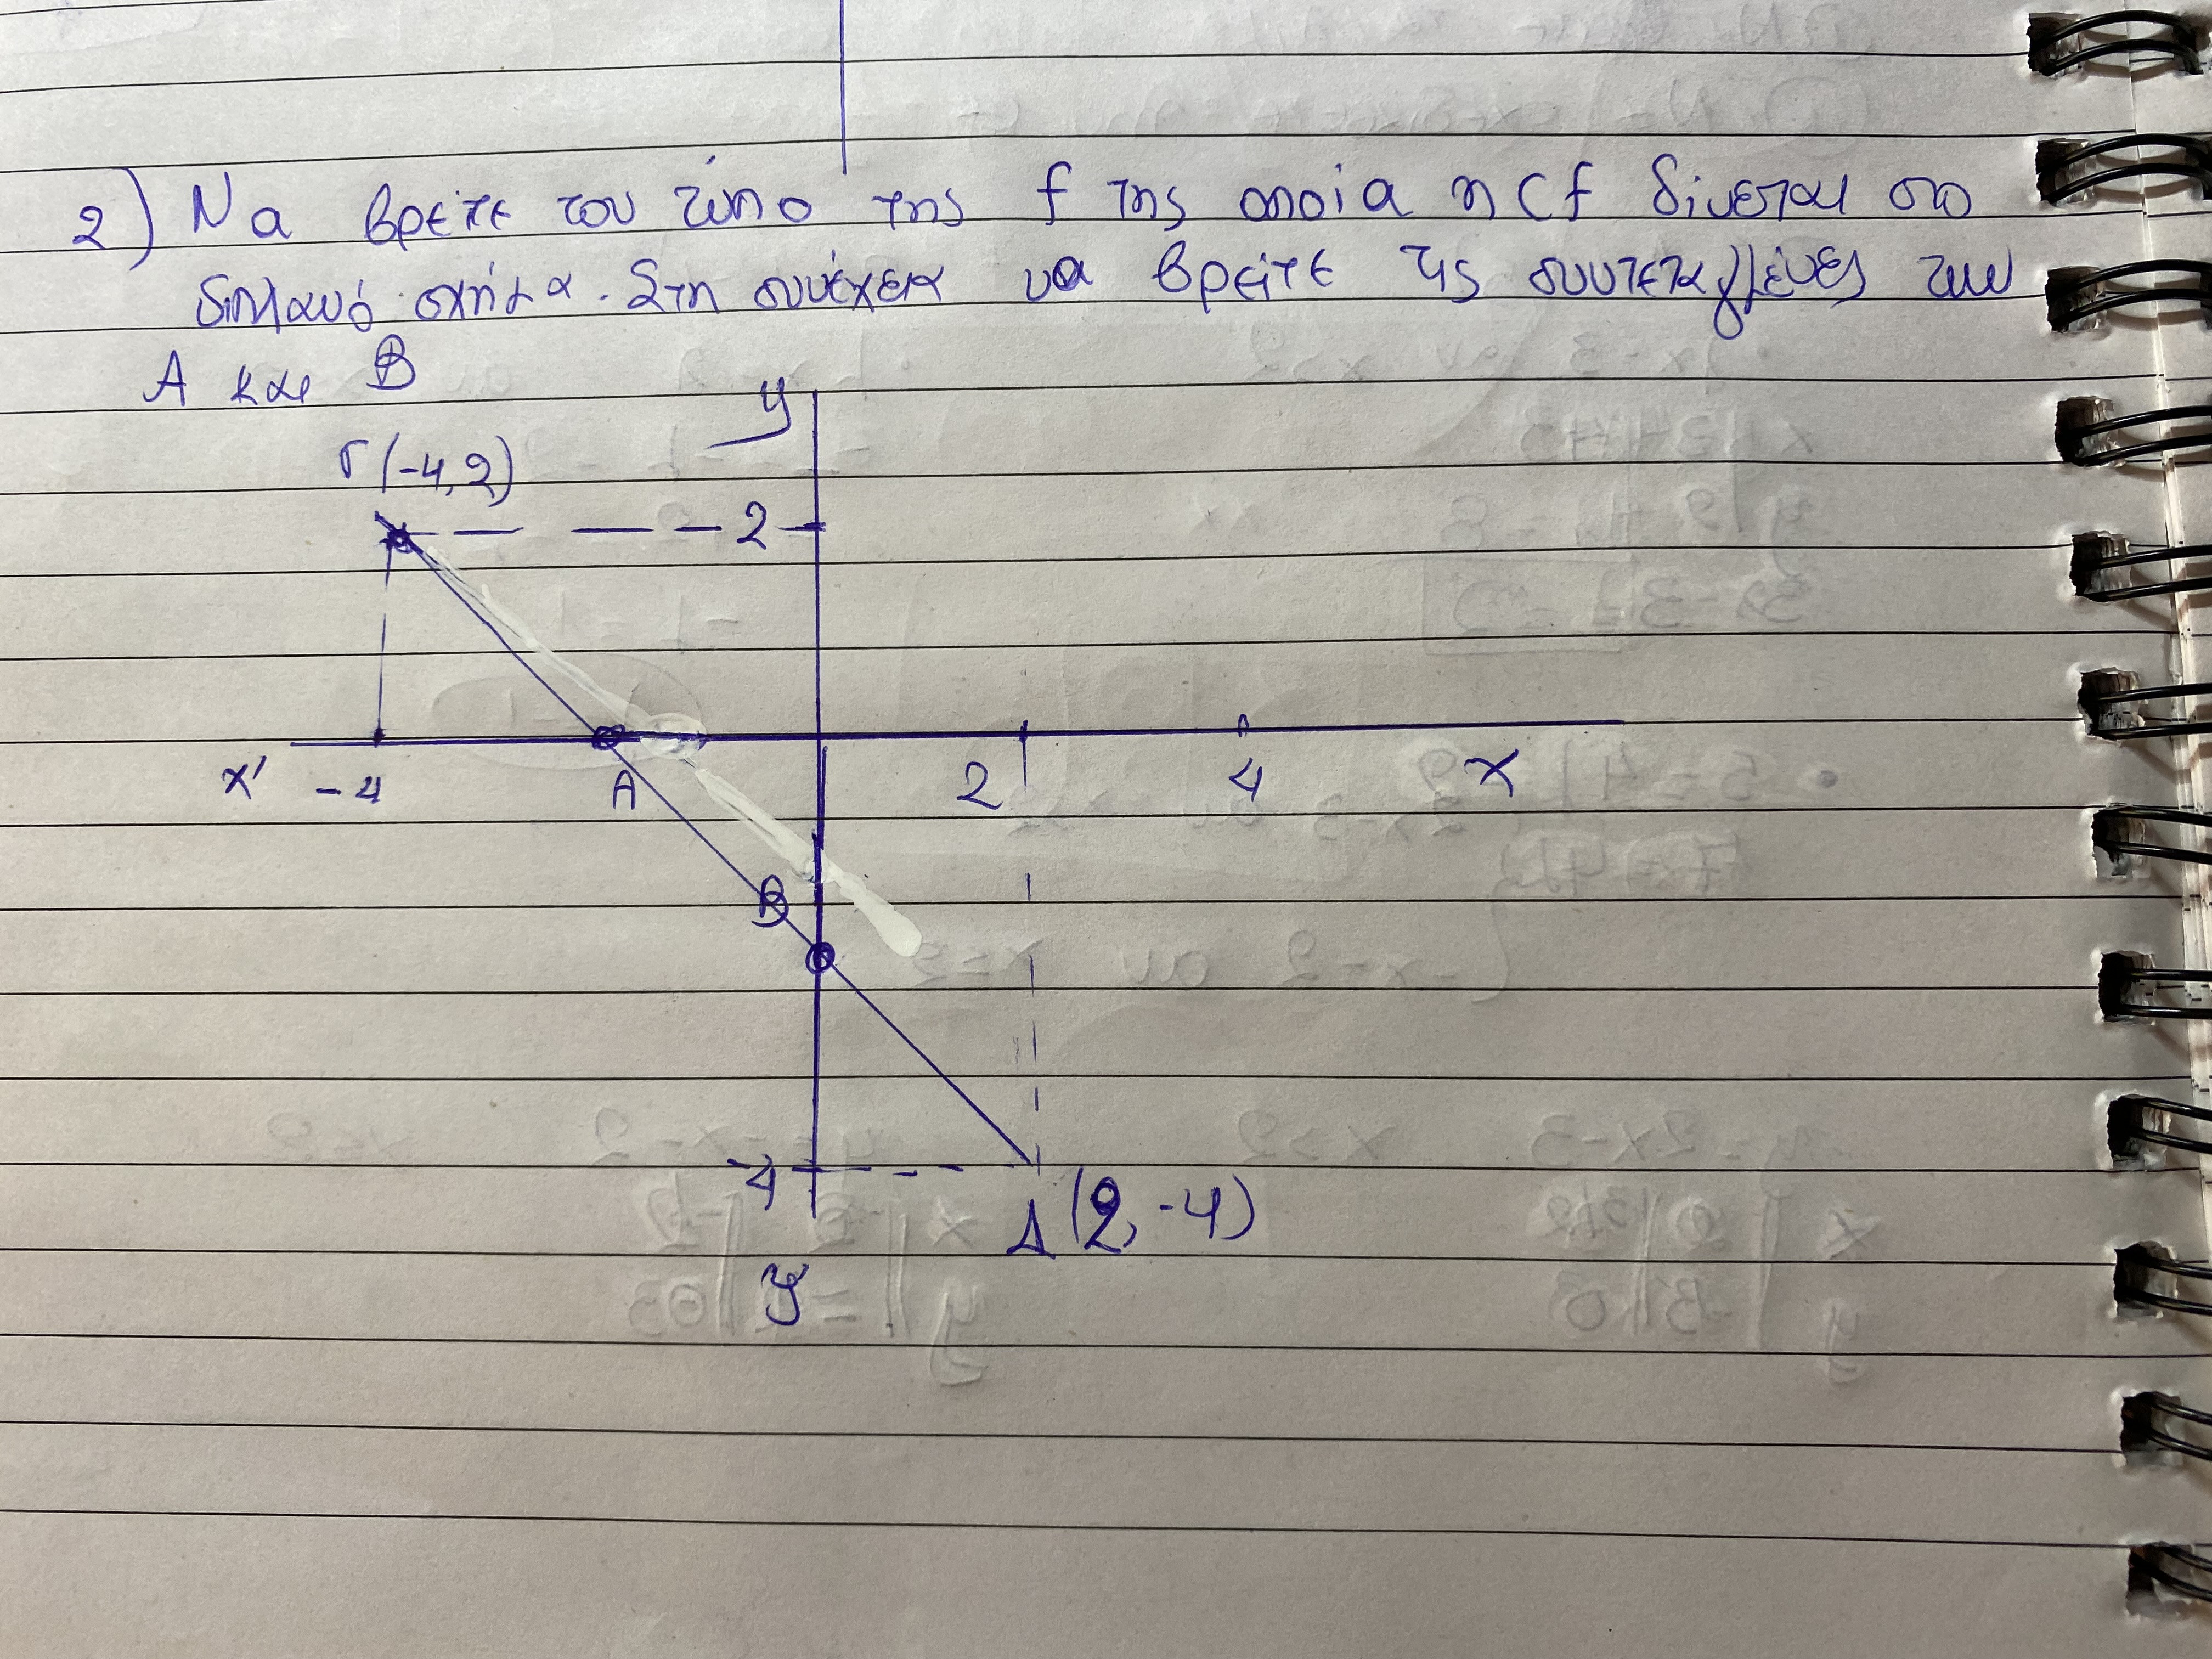 2) Να βρείτε τον τύπο της f της οποία η Cf δίνεται στο
διπλανό σχήμα. Στη συνέχεια να βρείτε τις συντεταγμένες των
A και B
y
Γ(-4,2)
2
x' -4 A 2 4 x
B
-4
Δ(2,-4)
y'